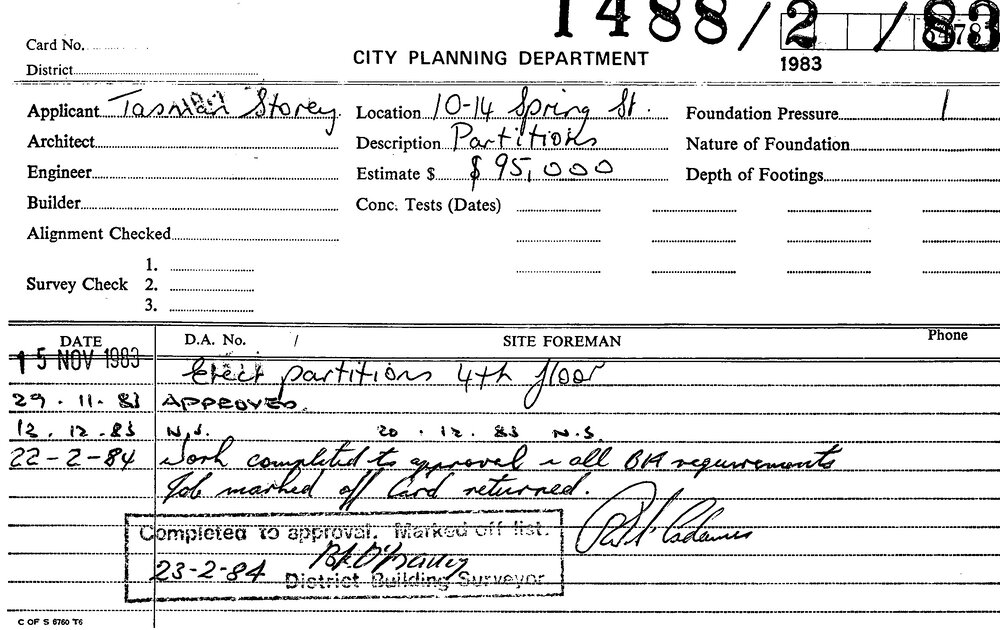 1488/2/83
Card No.
CITY PLANNING DEPARTMENT
1983
District
Applicant Tasman Storey Location 10-14 Spring St. Foundation Pressure 1
Architect Description Partitions Nature of Foundation
Engineer Estimate $ $95,000 Depth of Footings
Builder Conc. Tests (Dates)
Alignment Checked
1.
Survey Check 2.
3.
DATE D.A. No. / SITE FOREMAN Phone
15 NOV 1983 Erect partitions 4th floor
29.11.83 APPROVED.
12.12.83 N.S. 20.12.83 N.S.
22-2-84 Work completed to approval all BA requirements
Job marked off Card returned.
Completed to approval. Marked off list.
23-2-84 District Building Surveyor
C OF S 6760 T6